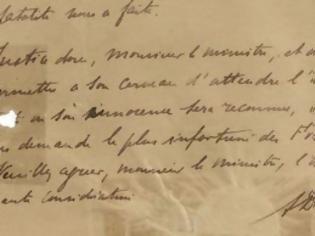 fatalité nous a fait.
Justice donc, monsieur le ministre, et
permettre a son cerveau d'attendre l'
où son innocence sera reconnue,
demande le plus infortuné des
Veuillez agréer, monsieur le ministre, l'
haute considération